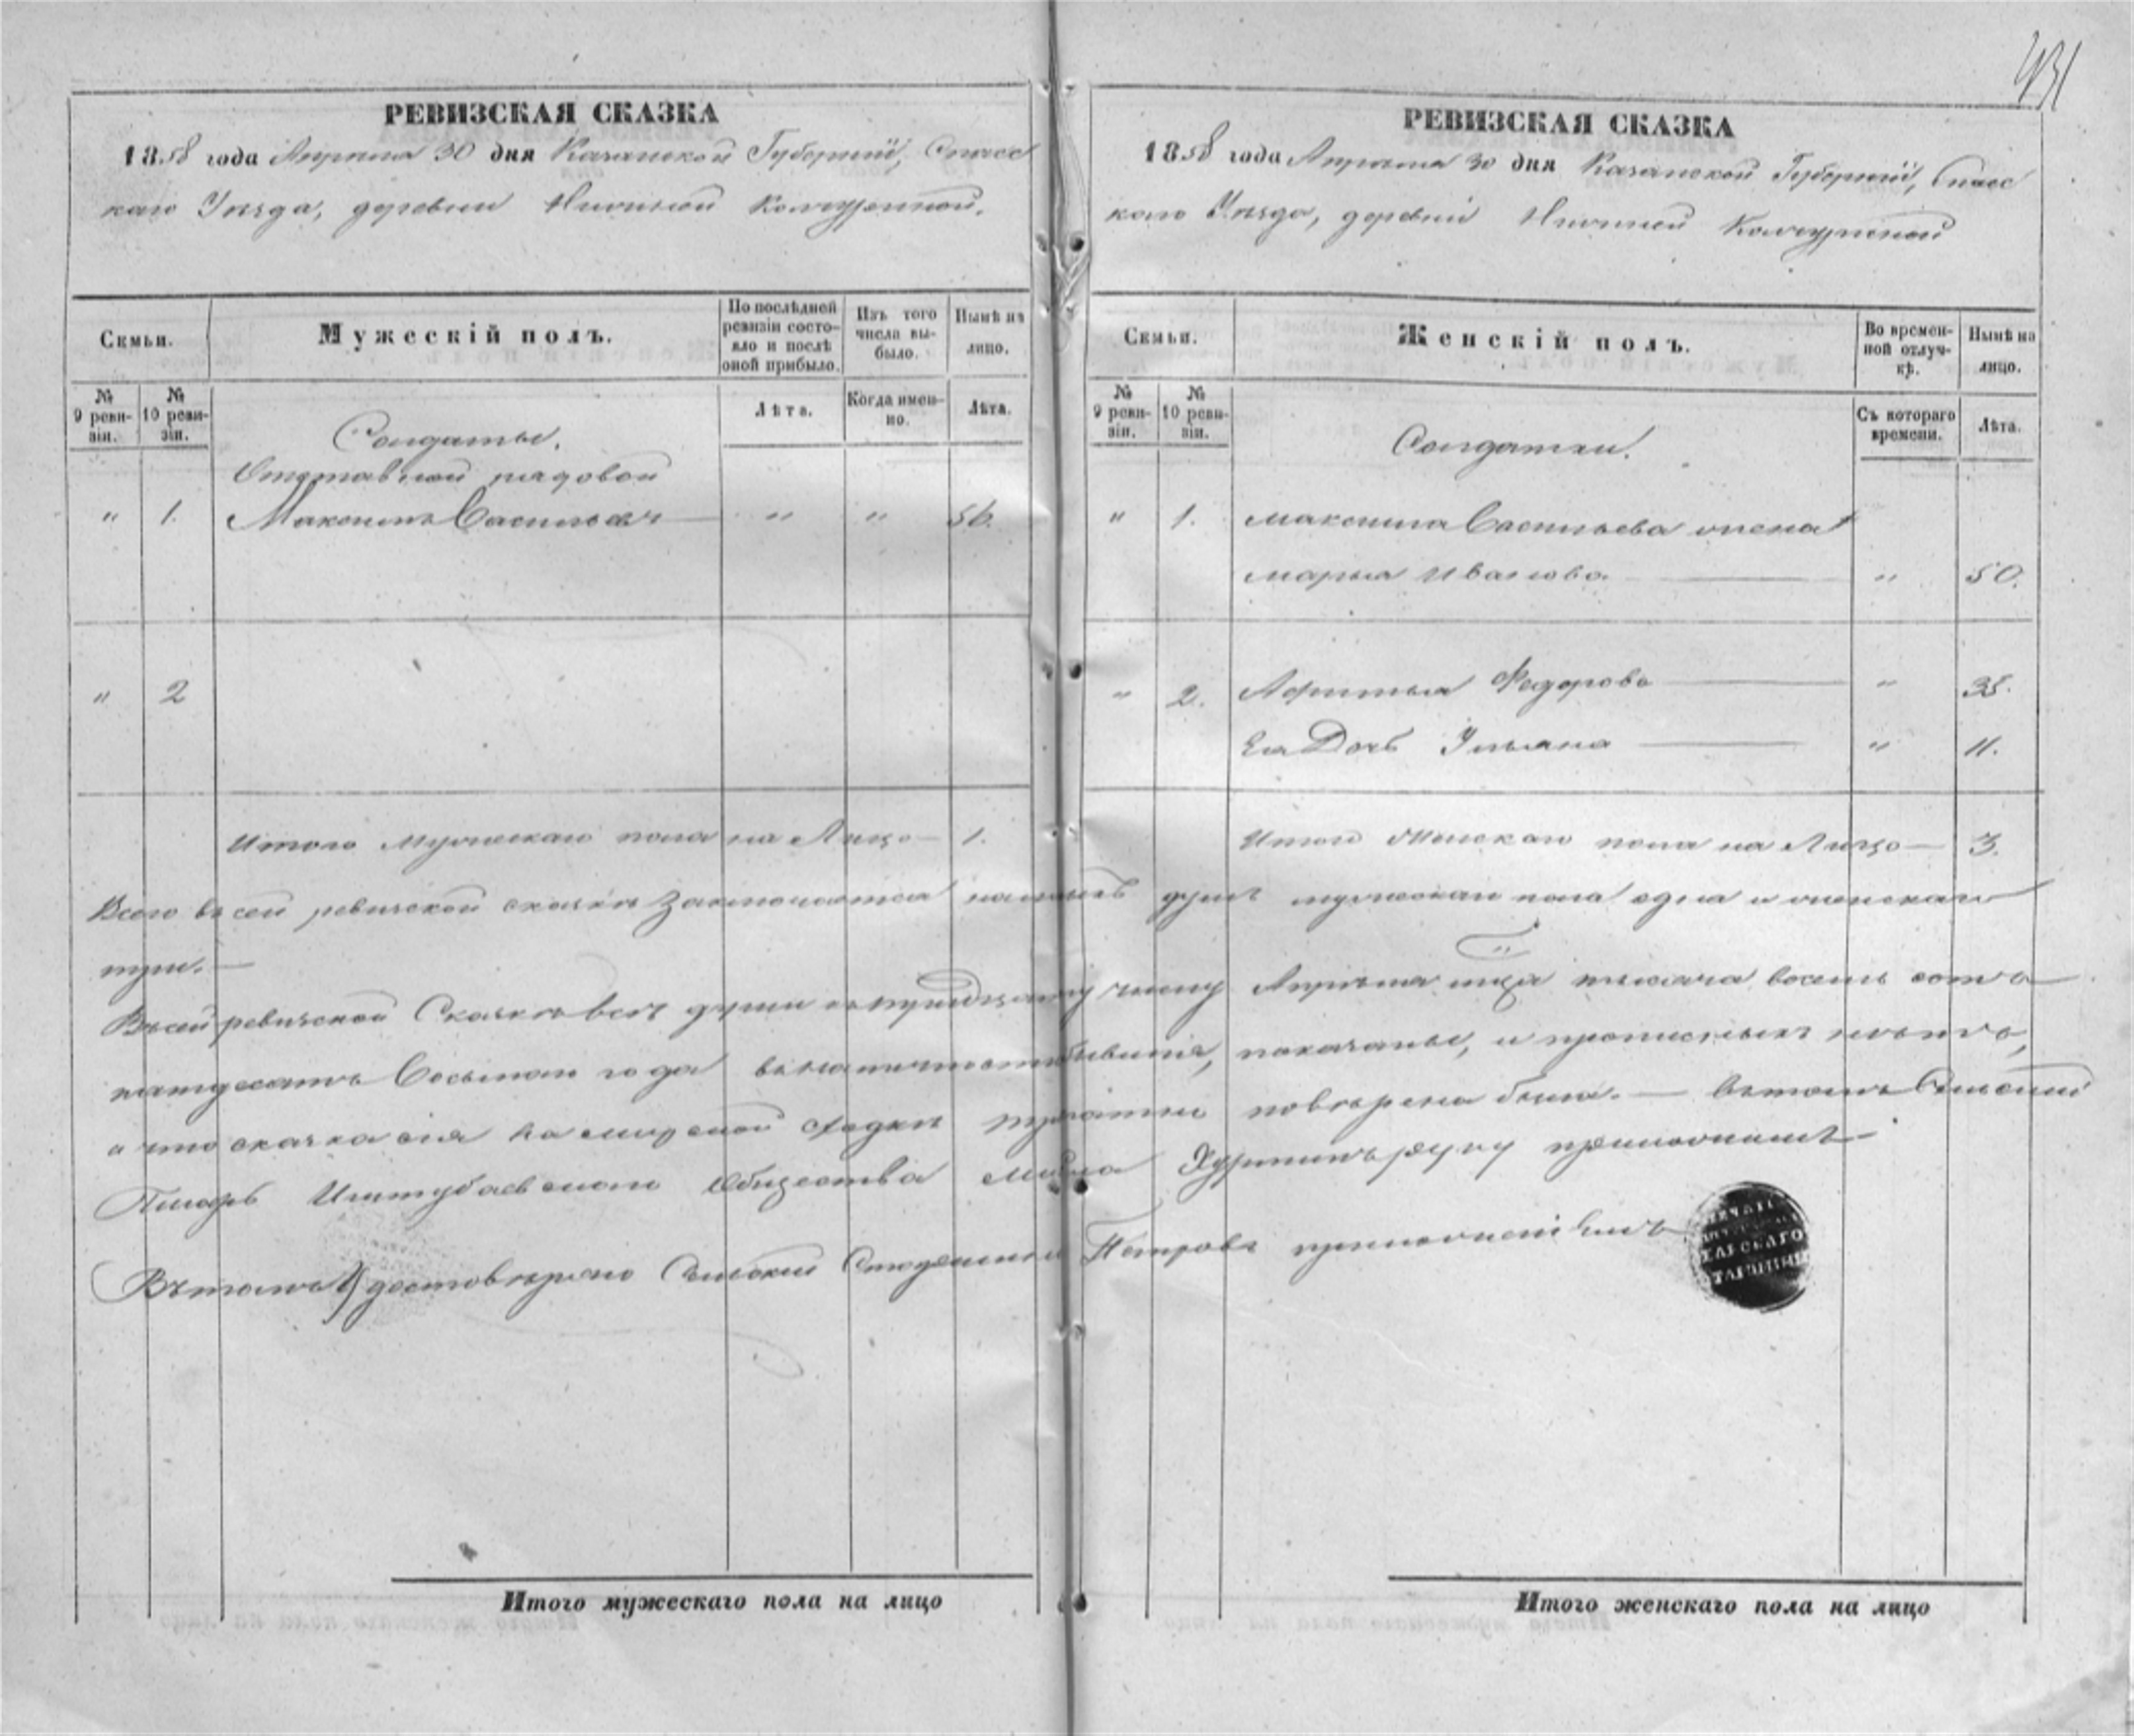 431
РЕВИЗСКАЯ СКАЗКА
1858 года Апреля 30 дня Казанской Губернiи, Спасс
каго Уѣзда, деревни Нижней Колчуриной.
Семьи.
Мужескiй полъ.
По послѣдней ревизiи состояло и послѣ оной прибыло.
Изъ того числа выбыло.
Нынѣ на лицо.
№ 9 ревизiи.
№ 10 ревизiи.
Лѣта.
Когда именно.
Лѣта.
Солдаты.
Отставной рядовой
" 1. Максимъ Васильевъ " " 56.
" 2
Итого мужескаго пола на Лицо 1.
РЕВИЗСКАЯ СКАЗКА
1858 года Апреля 30 дня Казанской Губернiи, Спасс
каго Уѣзда, деревни Нижней Колчуриной
Семьи.
Женскiй полъ.
Во временной отлучкѣ.
Нынѣ на лицо.
№ 9 ревизiи.
№ 10 ревизiи.
Съ котораго времени.
Лѣта.
Солдатки.
" 1. Максима Васильева жена
Марья Иванова " 50.
" 2. Афимья Федорова " 38.
Ея Дочь Ульяна " 11.
Итого Женскаго пола на Лицо 3.
Всего въ сей ревизской сказкѣ заключается наличныхъ душъ мужескаго пола одна и женскаго
три.
Въ сей ревизской Сказкѣ всѣ души къ тридцатому числу Апрѣля мца тысяча восемь сотъ
пятдесятъ Восьмаго года въ наличности бывшiя, показаны, и прописныхъ нѣтъ,
и что сказка сiя на мирской сходкѣ читана повѣрена была. — Въ томъ Сельскiй
Писарь Иштубаевскаго Общества руку приложилъ
Въ томъ достовѣрно Сельскiй Старшина Петровъ приложилъ
Итого мужескаго пола на лицо
Итого женскаго пола на лицо